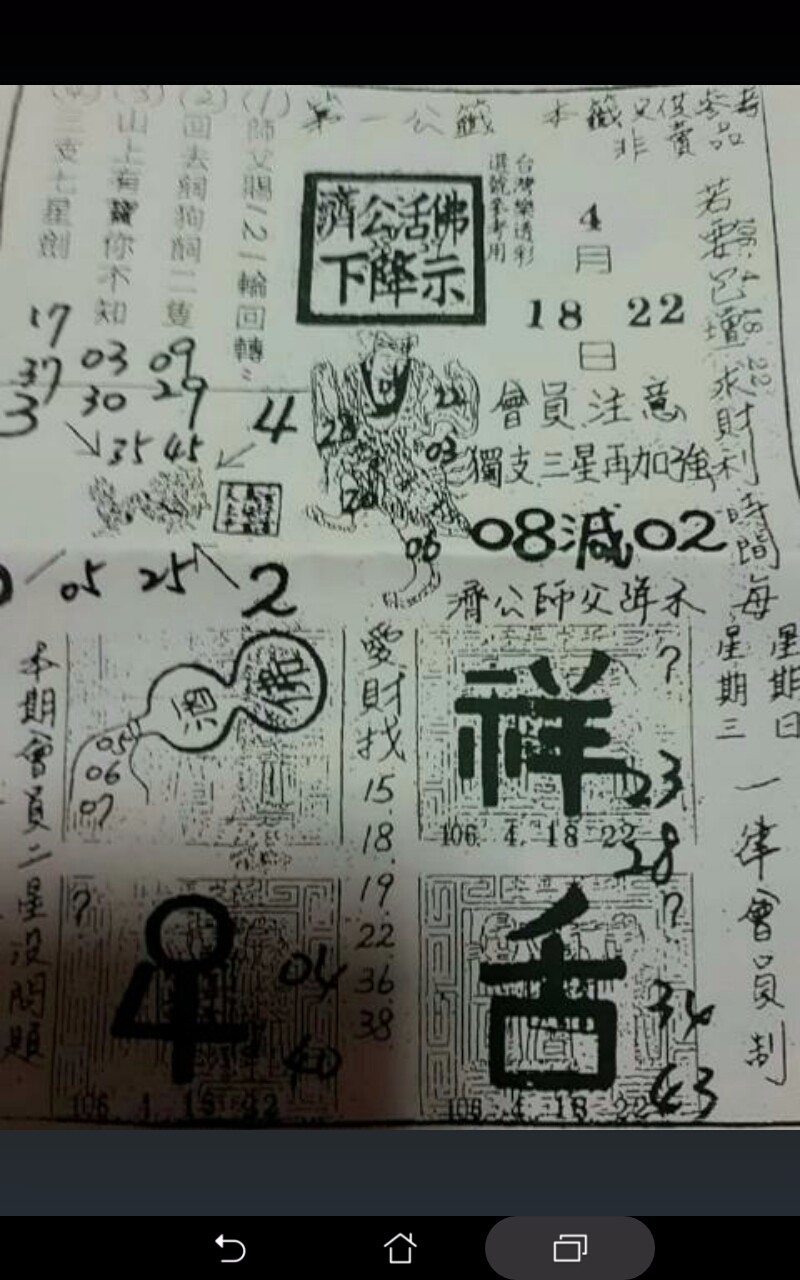 第一公籤
本籤只供參考
非賣品
台灣樂透彩
選號參考用
濟公活佛
下降示
4
月
18 22
日
(1)師父賜121輪回轉
(2)回去飼狗飼二隻
(3)山上有寶你不知
(4)三支七星劍
若要包壇求財利時間每
星期日
星期三
一律會員制
17
37 03 09
3 30 29 4
35 45
05 25 2
01
22
28
03
20
06
會員注意
獨支三星再加強
08減02
濟公師父降示
本期會員二星沒問題
酒
佛
05
06
07
愛財找
15
18
19
22
36
38
?
祥
23
28
106 4 18 22
?
04
40
106 4 18 22
?
舌
34
43
106 4 18 22